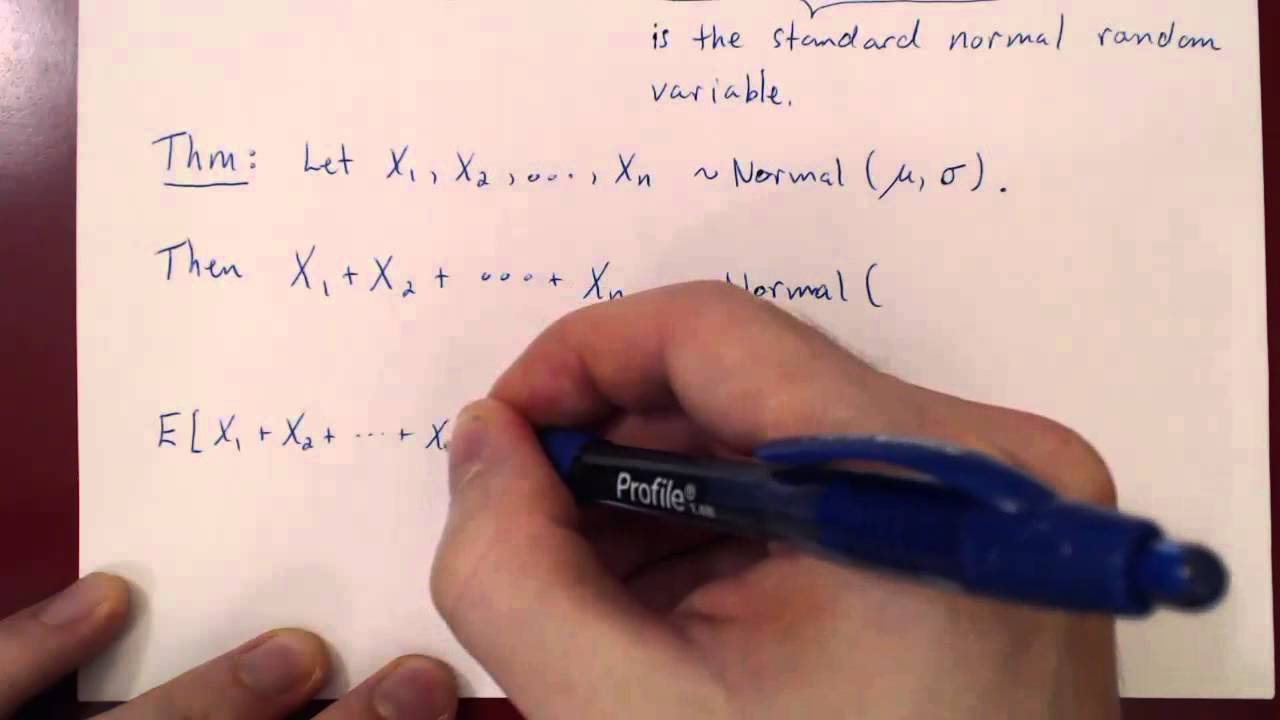 is the standard normal random
variable.
Thm: Let X₁, X₂, ..., Xₙ ~ Normal (μ, σ).
Then X₁ + X₂ + ... + Xₙ Normal (
E[X₁ + X₂ + ... + X
Profile®